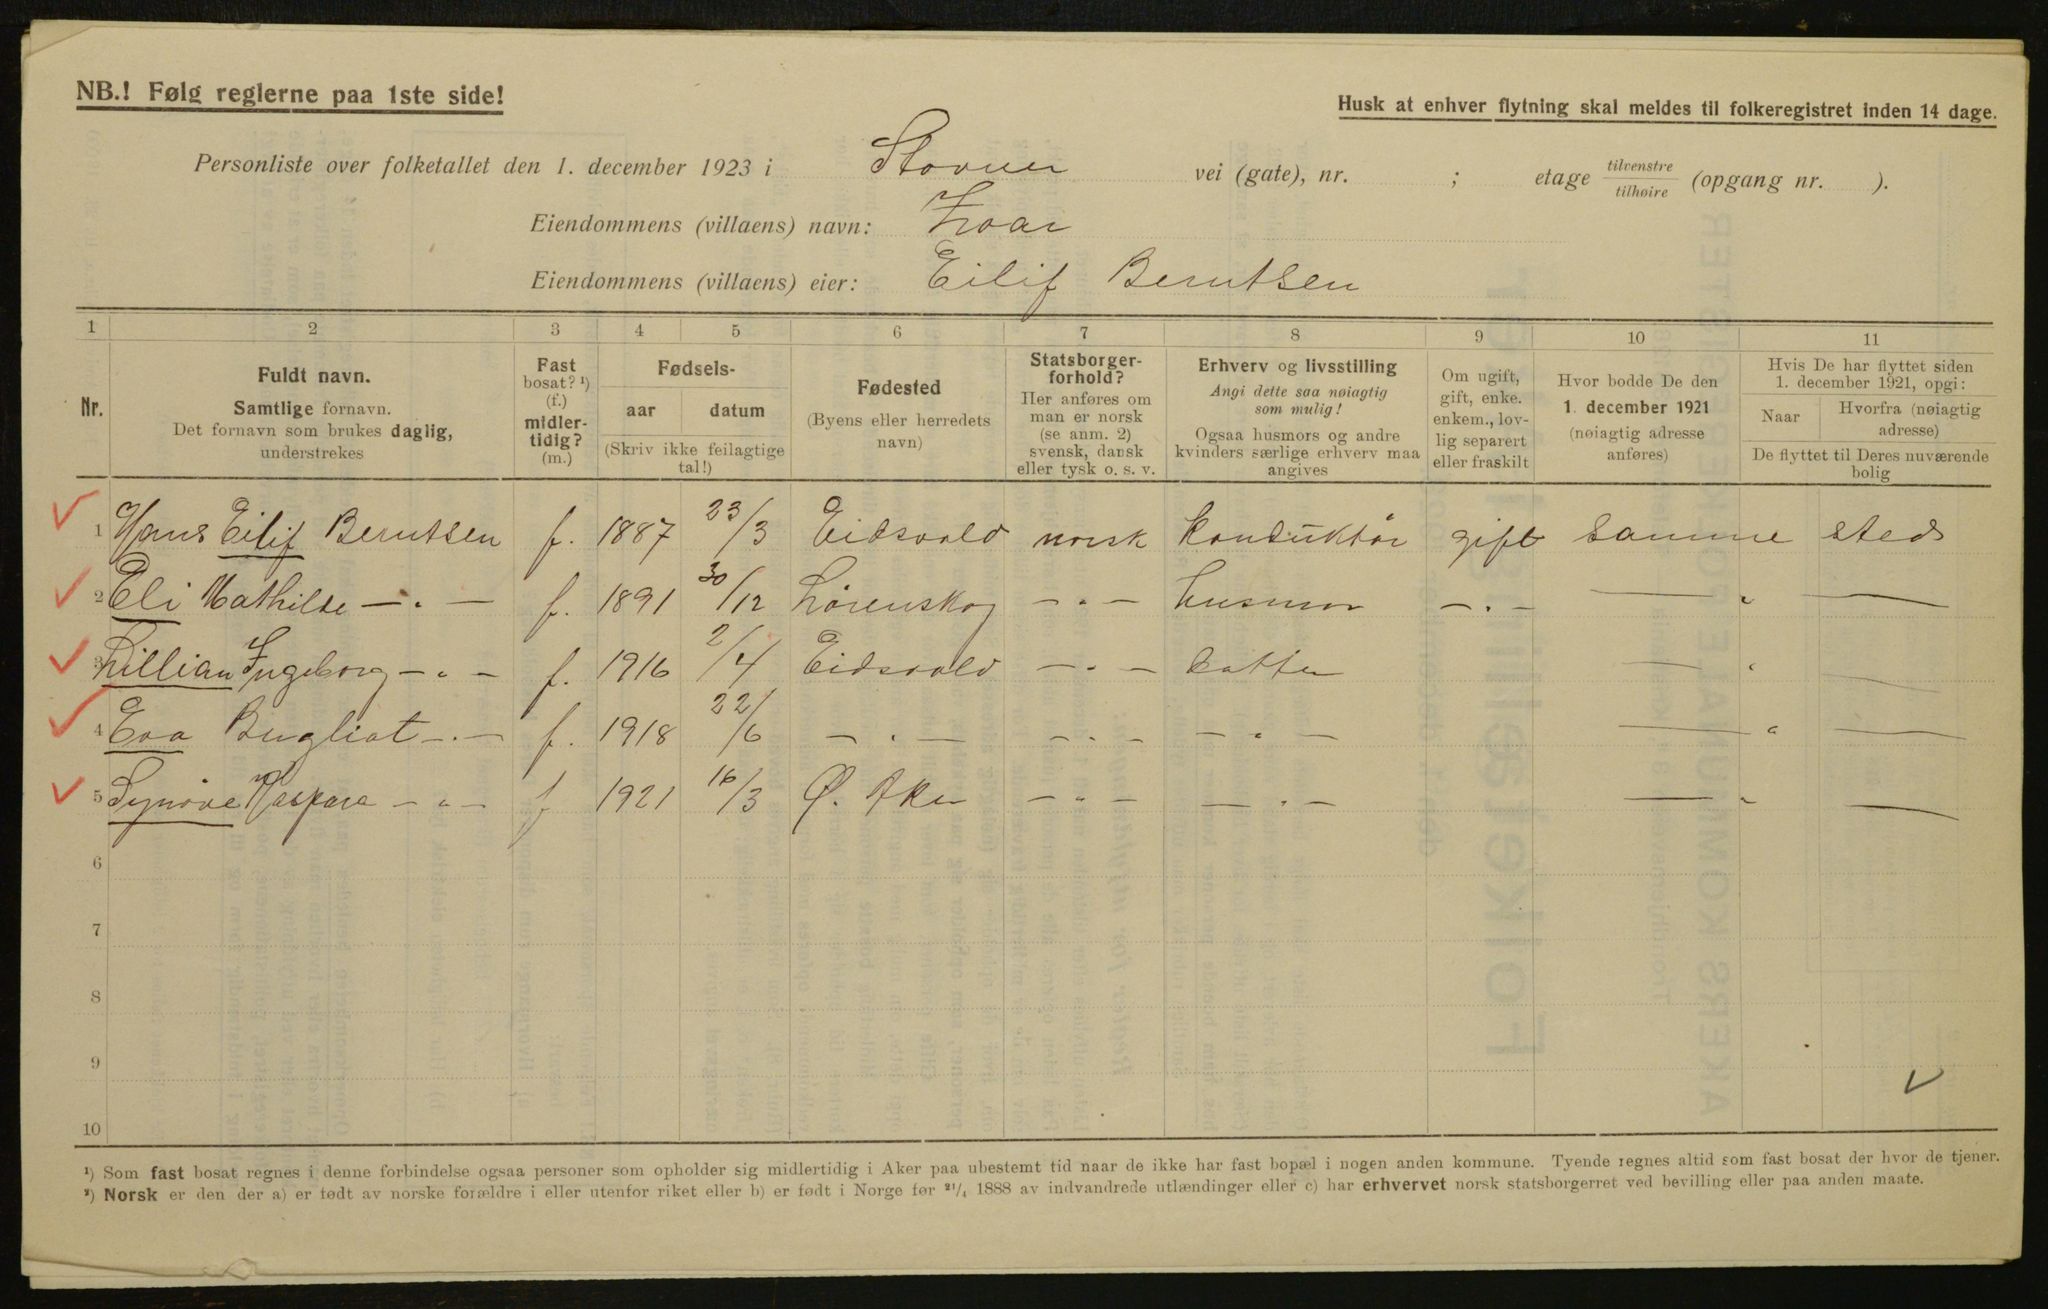 NB.! Følg reglerne paa 1ste side!
Husk at enhver flytning skal meldes til folkeregistret inden 14 dage.
Personliste over folketallet den 1. december 1923 i Stovner vei (gate), nr. ; etage tilvenstre/tilhøire (opgang nr. ).
Eiendommens (villaens) navn: Zoar
Eiendommens (villaens) eier: Eilif Berntsen
1 2 3 4 5 6 7 8 9 10 11
Nr.
Fuldt navn.
Samtlige fornavn.
Det fornavn som brukes daglig,
understrekes
Fast
bosat? ¹)
(f.)
midler-
tidig?
(m.)
Fødsels-
aar datum
(Skriv ikke feilagtige
tal!)
Fødested
(Byens eller herredets
navn)
Statsborger-
forhold?
Her anføres om
man er norsk
(se anm. 2)
svensk, dansk
eller tysk o. s. v.
Erhverv og livsstilling
Angi dette saa nøiagtig
som mulig!
Ogsaa husmors og andre
kvinders særlige erhverv maa
angives
Om ugift,
gift, enke.
enkem., lov-
lig separert
eller fraskilt
Hvor bodde De den
1. december 1921
(nøiagtig adresse
anføres)
Hvis De har flyttet siden
1. december 1921, opgi:
Naar Hvorfra (nøiagtig
adresse)
De flyttet til Deres nuværende
bolig
1 Hans Eilif Berntsen f. 1887 23/3 Eidsvold norsk konduktør gift samme sted
2 Eli Mathilde — „ — f. 1891 30/12 Lørenskog — „ — husmor — „ — — „ —
3 Lillian Ingeborg — „ — f. 1916 2/4 Eidsvold — „ — datter — „ —
4 Eva — „ — f. 1918 22/6 — „ — — „ — — „ — — „ —
5 Synøve — „ — f 1921 16/3 Ø. Aker — „ — — „ — — „ —
6
7
8
9
10
¹) Som fast bosat regnes i denne forbindelse ogsaa personer som opholder sig midlertidig i Aker paa ubestemt tid naar de ikke har fast bopæl i nogen anden kommune. Tyende regnes altid som fast bosat der hvor de tjener.
²) Norsk er den der a) er født av norske forældre i eller utenfor riket eller b) er født i Norge før ²¹/₄ 1888 av indvandrede utlændinger eller c) har erhvervet norsk statsborgerret ved bevilling eller paa anden maate.